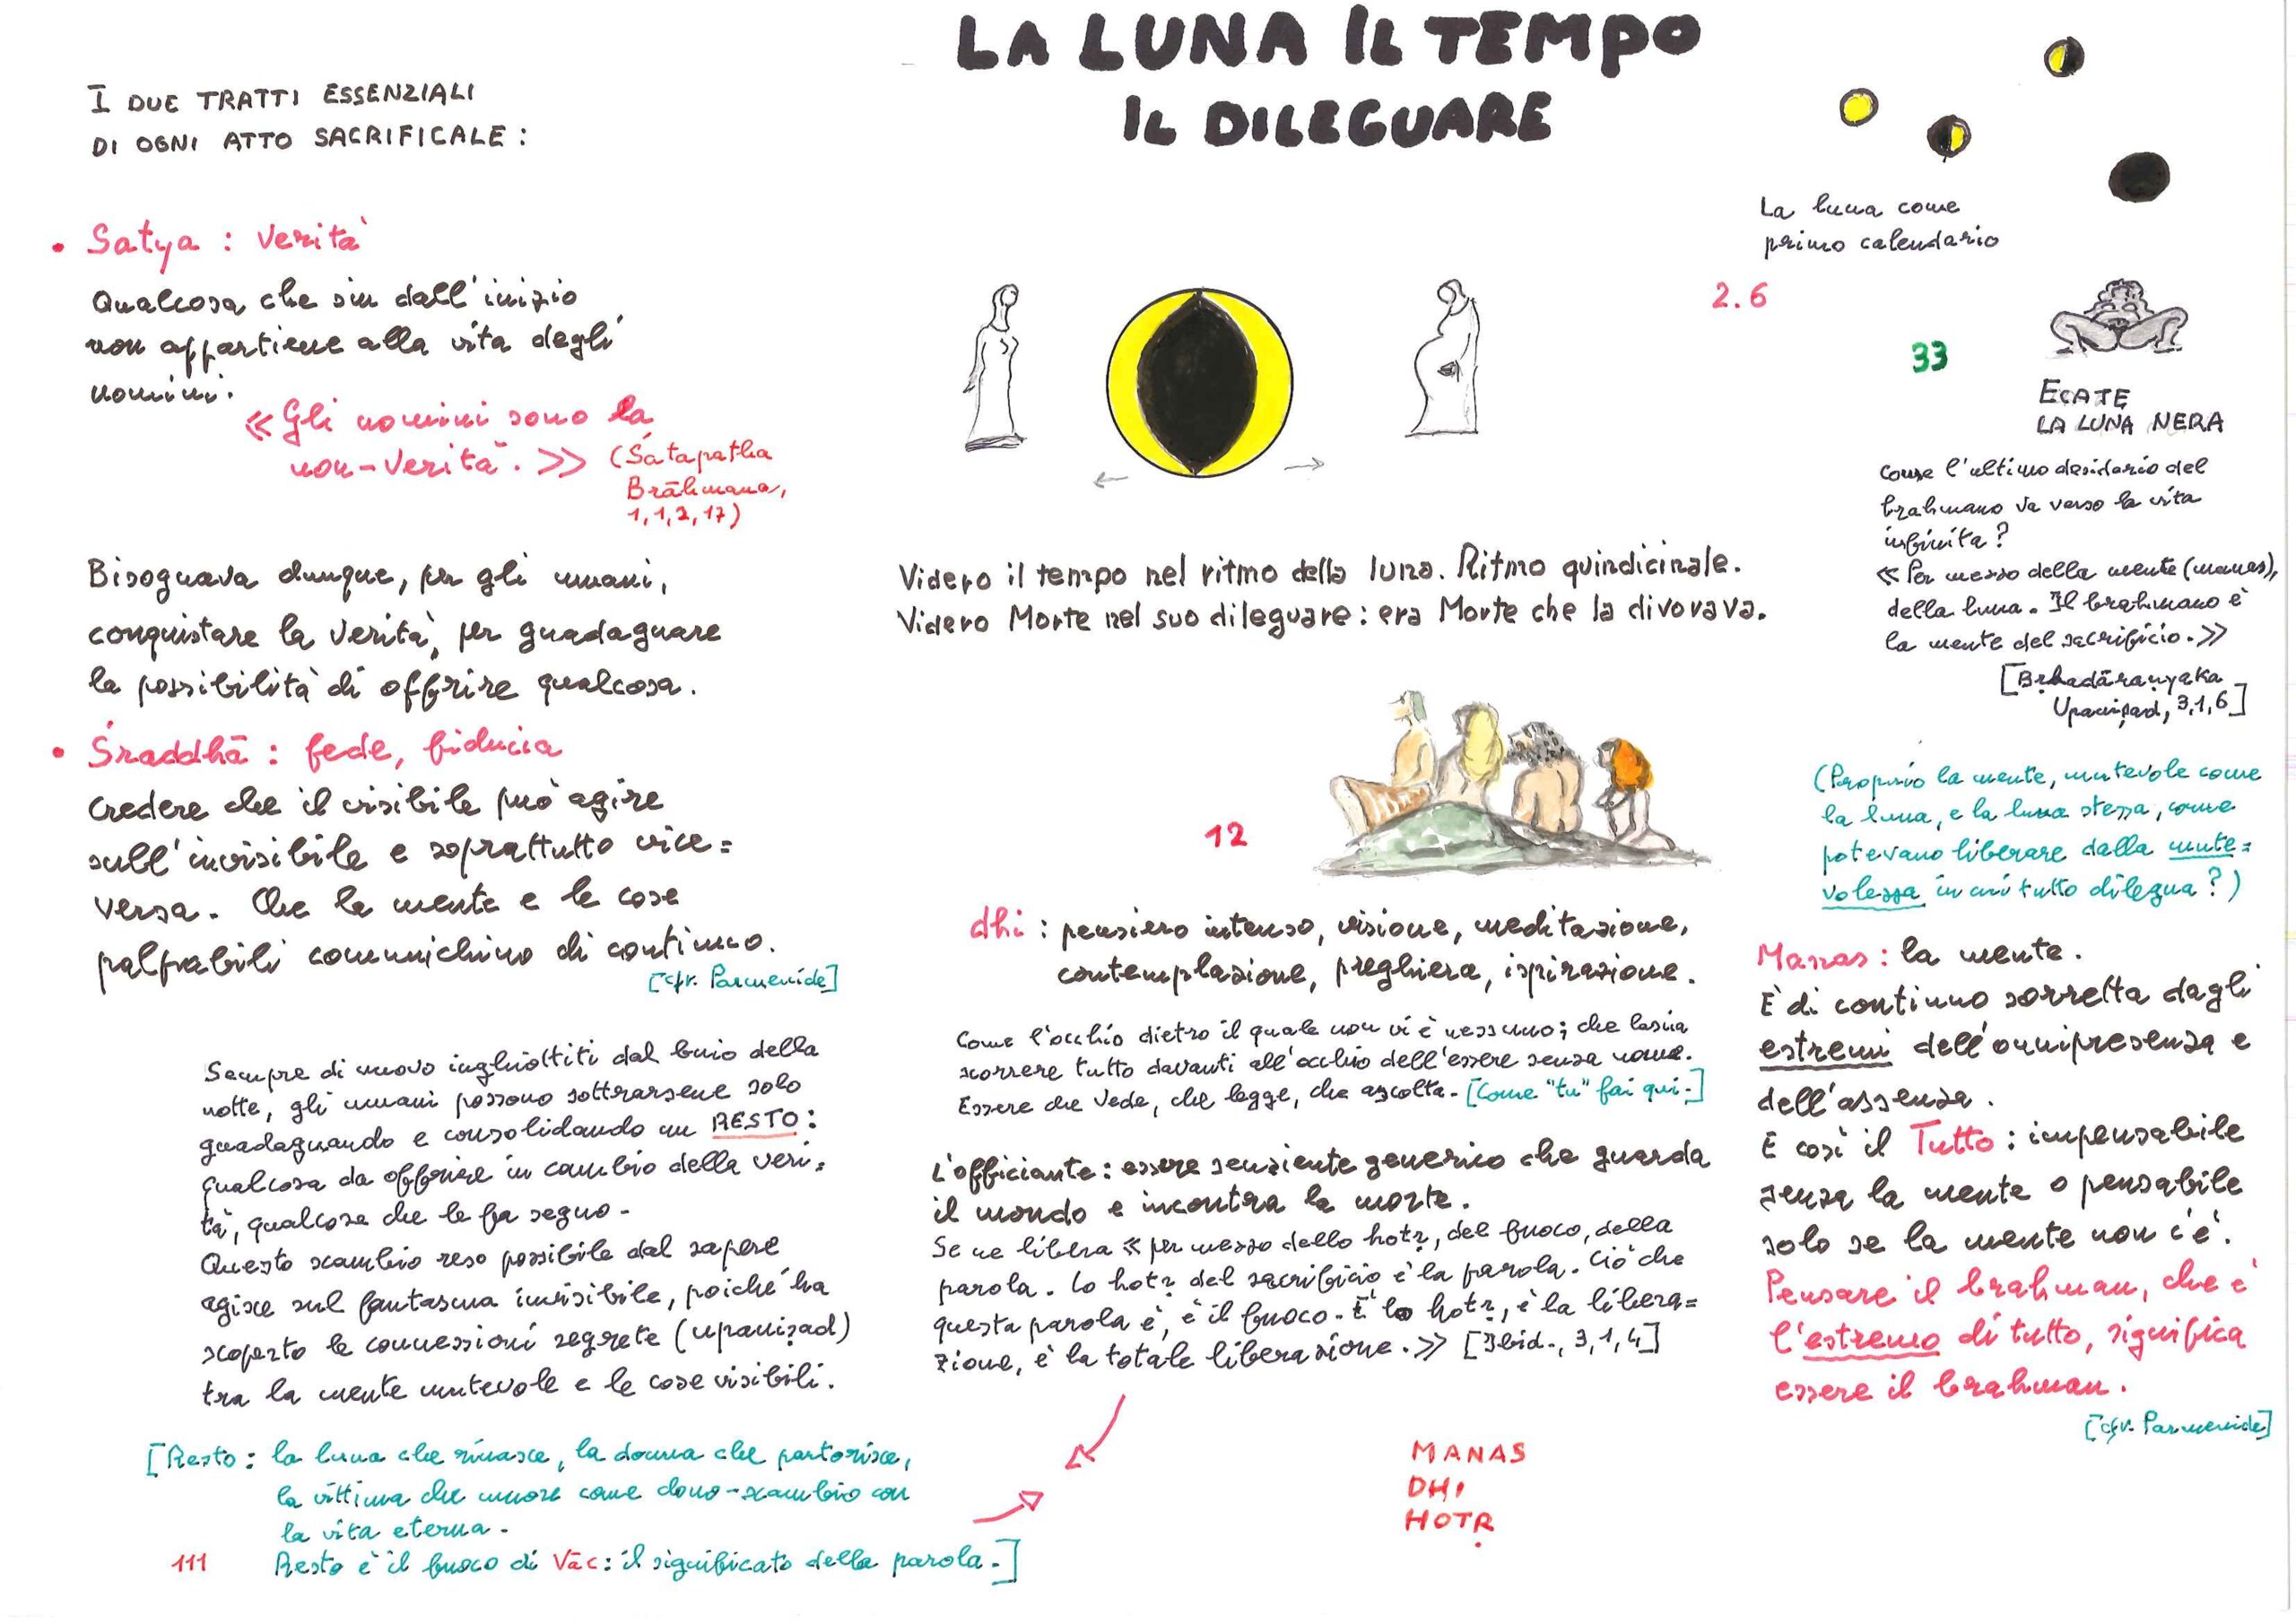 LA LUNA IL TEMPO
IL DILEGUARE
I DUE TRATTI ESSENZIALI
DI OGNI ATTO SACRIFICALE :
• Satya : Verità
Qualcosa che sin dall'inizio
non appartiene alla vita degli
uomini.
« Gli uomini sono la
non-Verità. » (Śatapatha
Brāhmana,
1,1,2,17)
Bisognava dunque, per gli umani,
conquistare la Verità, per guadagnare
la possibilità di offrire qualcosa.
• Śraddhā : fede, fiducia
Credere che il visibile può agire
sull'invisibile e soprattutto vice=
versa. Che la mente e le cose
palpabili comunichino di continuo.
[cfr. Parmenide]
Sempre di nuovo inghiottiti dal buio della
notte, gli umani possono sottrarsene solo
guadagnando e consolidando un RESTO :
qualcosa da offrire in cambio della veri=
tà, qualcosa che le fa segno.
Questo scambio reso possibile dal sapere
agisce sul fantasma invisibile, poiché ha
scoperto le connessioni segrete (upaniṣad)
tra la mente mutevole e le cose visibili.
[Resto : la luna che rinasce, la donna che partorisce,
la vittima che muore come dono-scambio con
la vita eterna.
Resto è il fuoco di Vāc : il significato della parola.]
111
Videro il tempo nel ritmo della luna. Ritmo quindicinale.
Videro Morte nel suo dileguare : era Morte che la divorava.
12
dhi : pensiero intenso, visione, meditazione,
contemplazione, preghiera, ispirazione.
Come l'occhio dietro il quale non vi è nessuno; che lascia
scorrere tutto davanti all'occhio dell'essere senza nome.
Essere che vede, che legge, che ascolta. [Come "tu" fai qui.]
L'officiante : essere senziente generico che guarda
il mondo e incontra la morte.
Se ne libera « per mezzo dello hotṛ, del fuoco, della
parola. Lo hotṛ del sacrificio è la parola. Ciò che
questa parola è, è il fuoco. È lo hotṛ, è la libera=
zione, è la totale liberazione. » [Ibid., 3,1,4]
MANAS
DHI
HOTṚ
La luna come
primo calendario
2.6
33
ECATE
LA LUNA NERA
Come l'ultimo desiderio del
brahmano va verso la vita
infinita?
« Per mezzo della mente (manas),
della luna. Il brahmano è
la mente del sacrificio. »
[Bṛhadāraṇyaka
Upaniṣad, 3,1,6]
(Proprio la mente, mutevole come
la luna, e la luna stessa, come
potevano liberare dalla mute=
volezza in cui tutto dilegua?)
Manas : la mente.
È di continuo sorretta dagli
estremi dell'onnipresenza e
dell'assenza.
E così il Tutto : impensabile
senza la mente o pensabile
solo se la mente non c'è.
Pensare il brahman, che è
l'estremo di tutto, significa
essere il brahman.
[cfr. Parmenide]